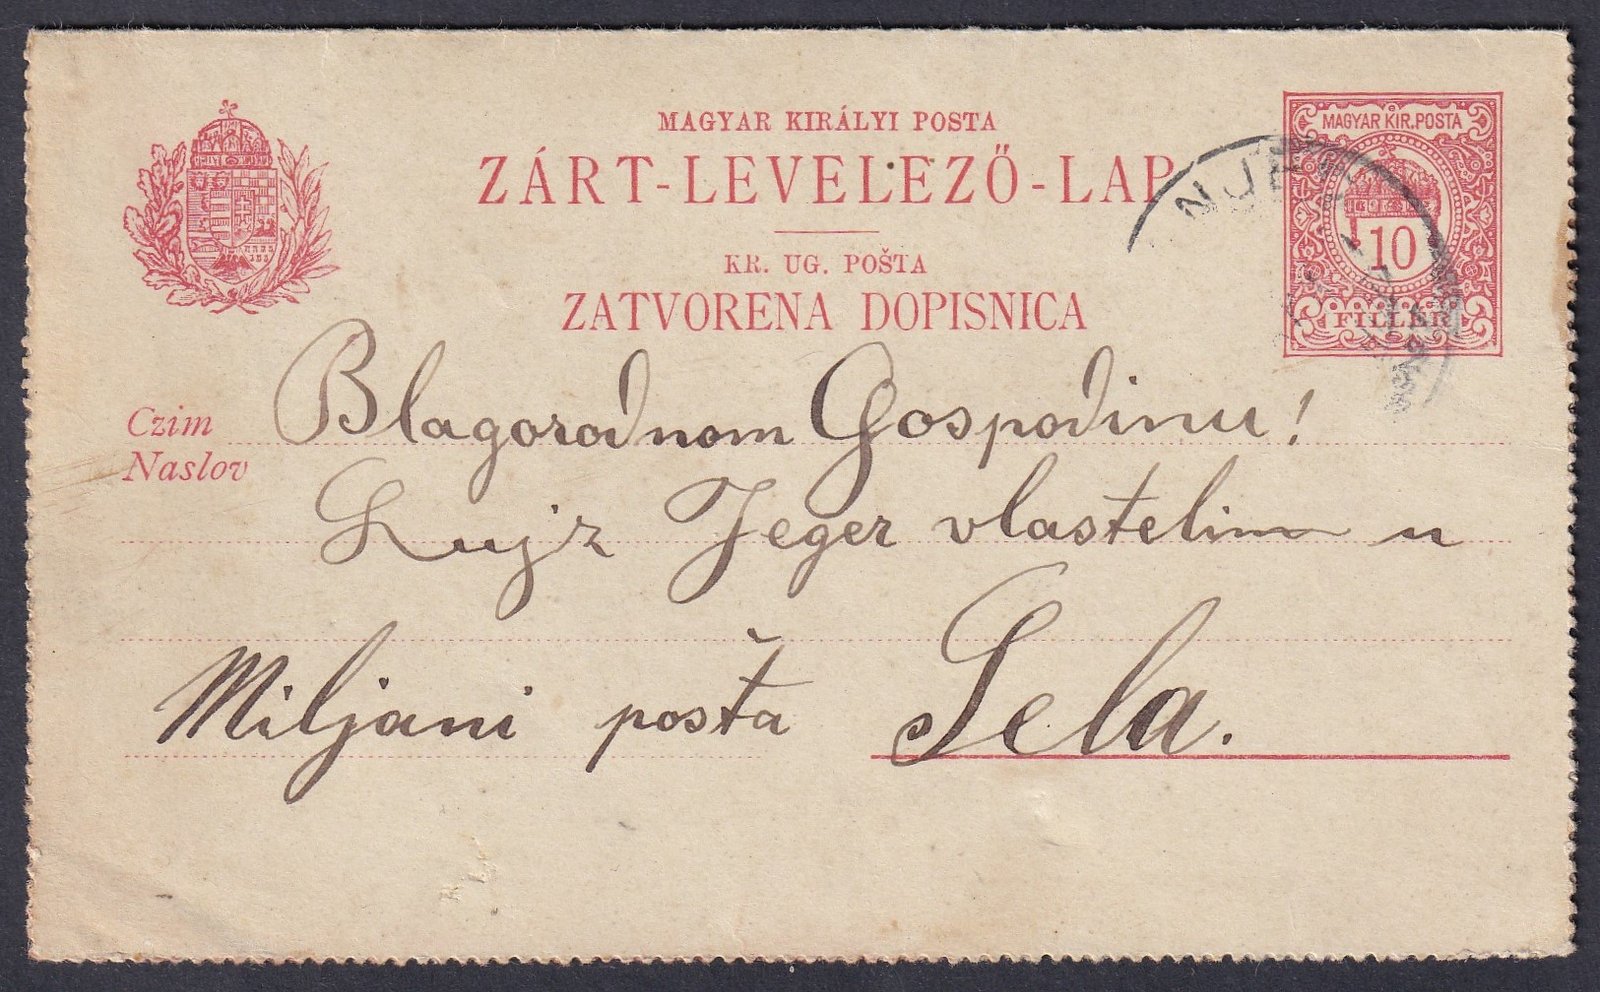 MAGYAR KIRÁLYI POSTA
ZÁRT-LEVELEZŐ-LAP
KR. UG. POŠTA
ZATVORENA DOPISNICA
MAGYAR KIR. POSTA
10
FILLÉR
Czim
Naslov
Blagorodnom Gospodinu!
Lujz Jeger vlastelinu u
Miljani pošta Sela.